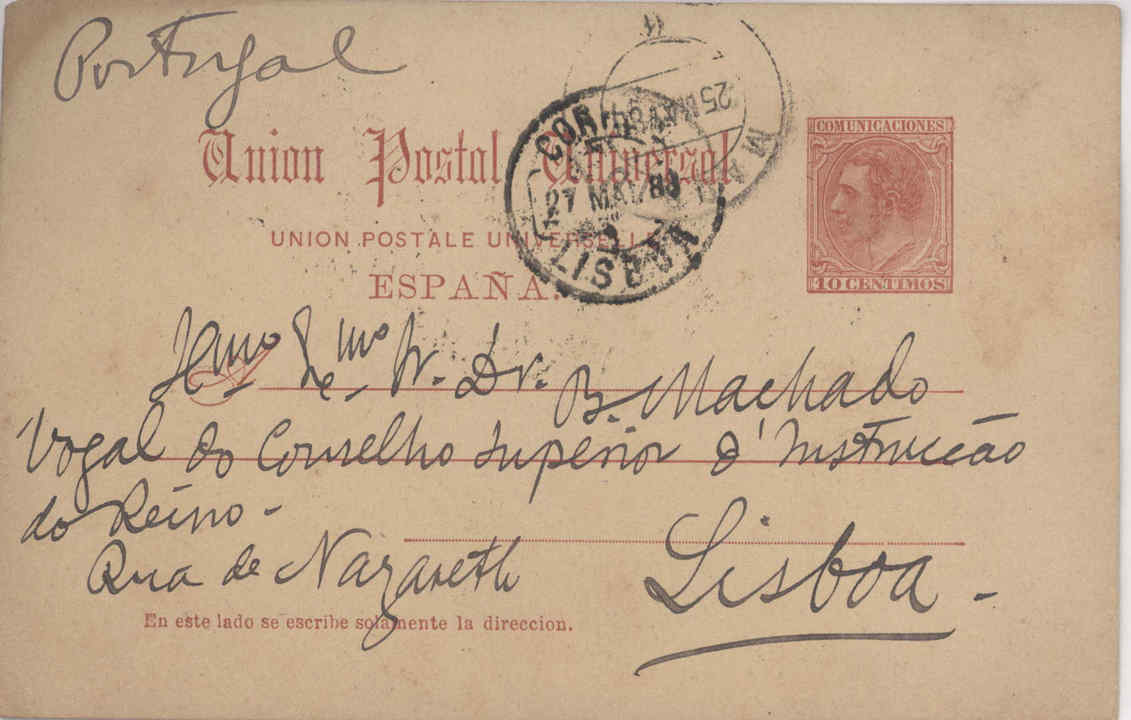 Portugal
COMUNICACIONES
Union Postal Universal
25 MAY 8
CORREIO
27 MAI/8
LISBOA
UNION POSTALE UNIVERSELLE
ESPAÑA.
10 CENTIMOS
Exmo Sr. Dr. B. Machado
Vogal do Conselho Superior d'Instrucção
do Reino -
Rua de Nazareth
Lisboa -
En este lado se escribe solamente la direccion.